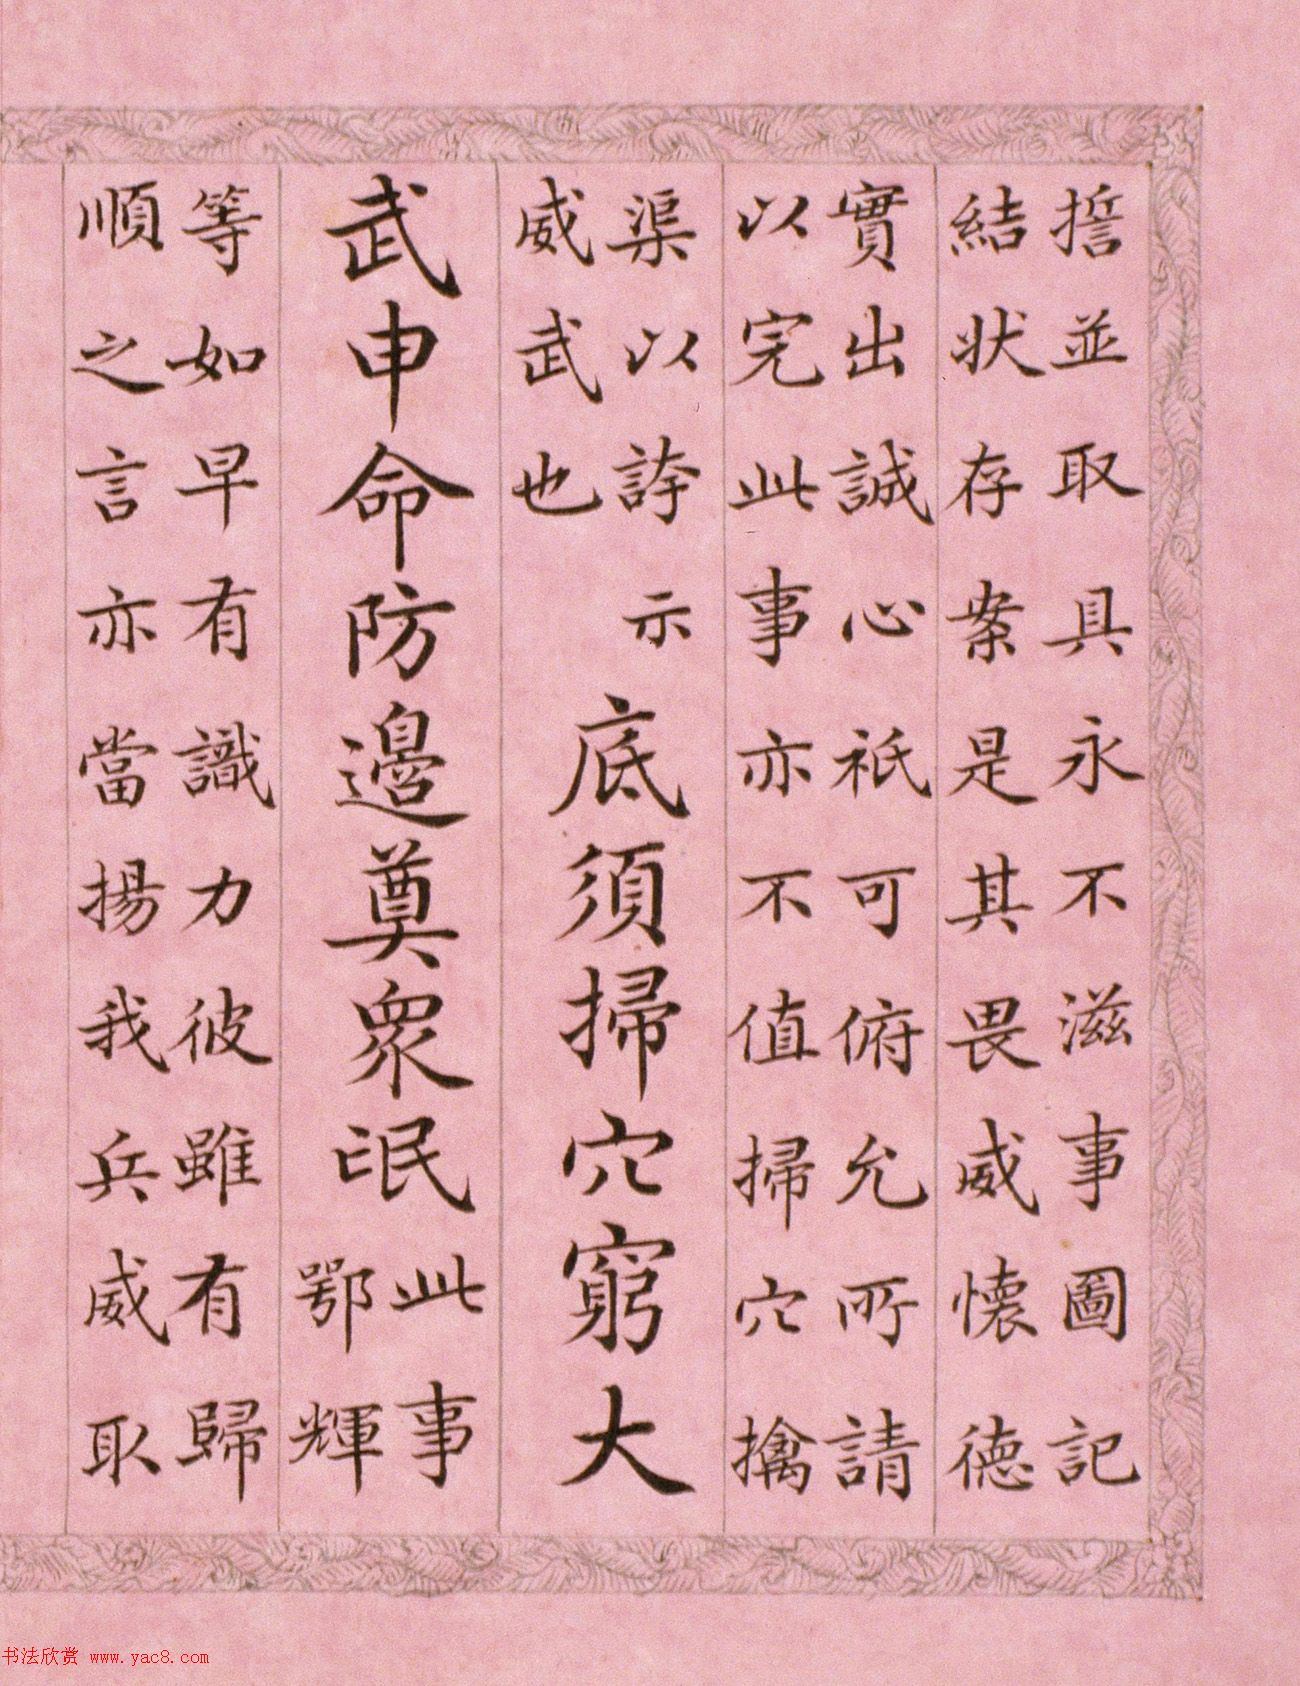 誓並取具永不滋事圖記
結状存案是其畏威懷德
實出誠心祇可俯允所請
以完此事亦不值掃穴擒
渠以誇示
威武也
底須掃穴窮大
武申命防邊奠衆氓
此事
鄂輝
等如早有識力彼雖有歸
順之言亦當揚我兵威取
书法欣赏 www.yac8.com